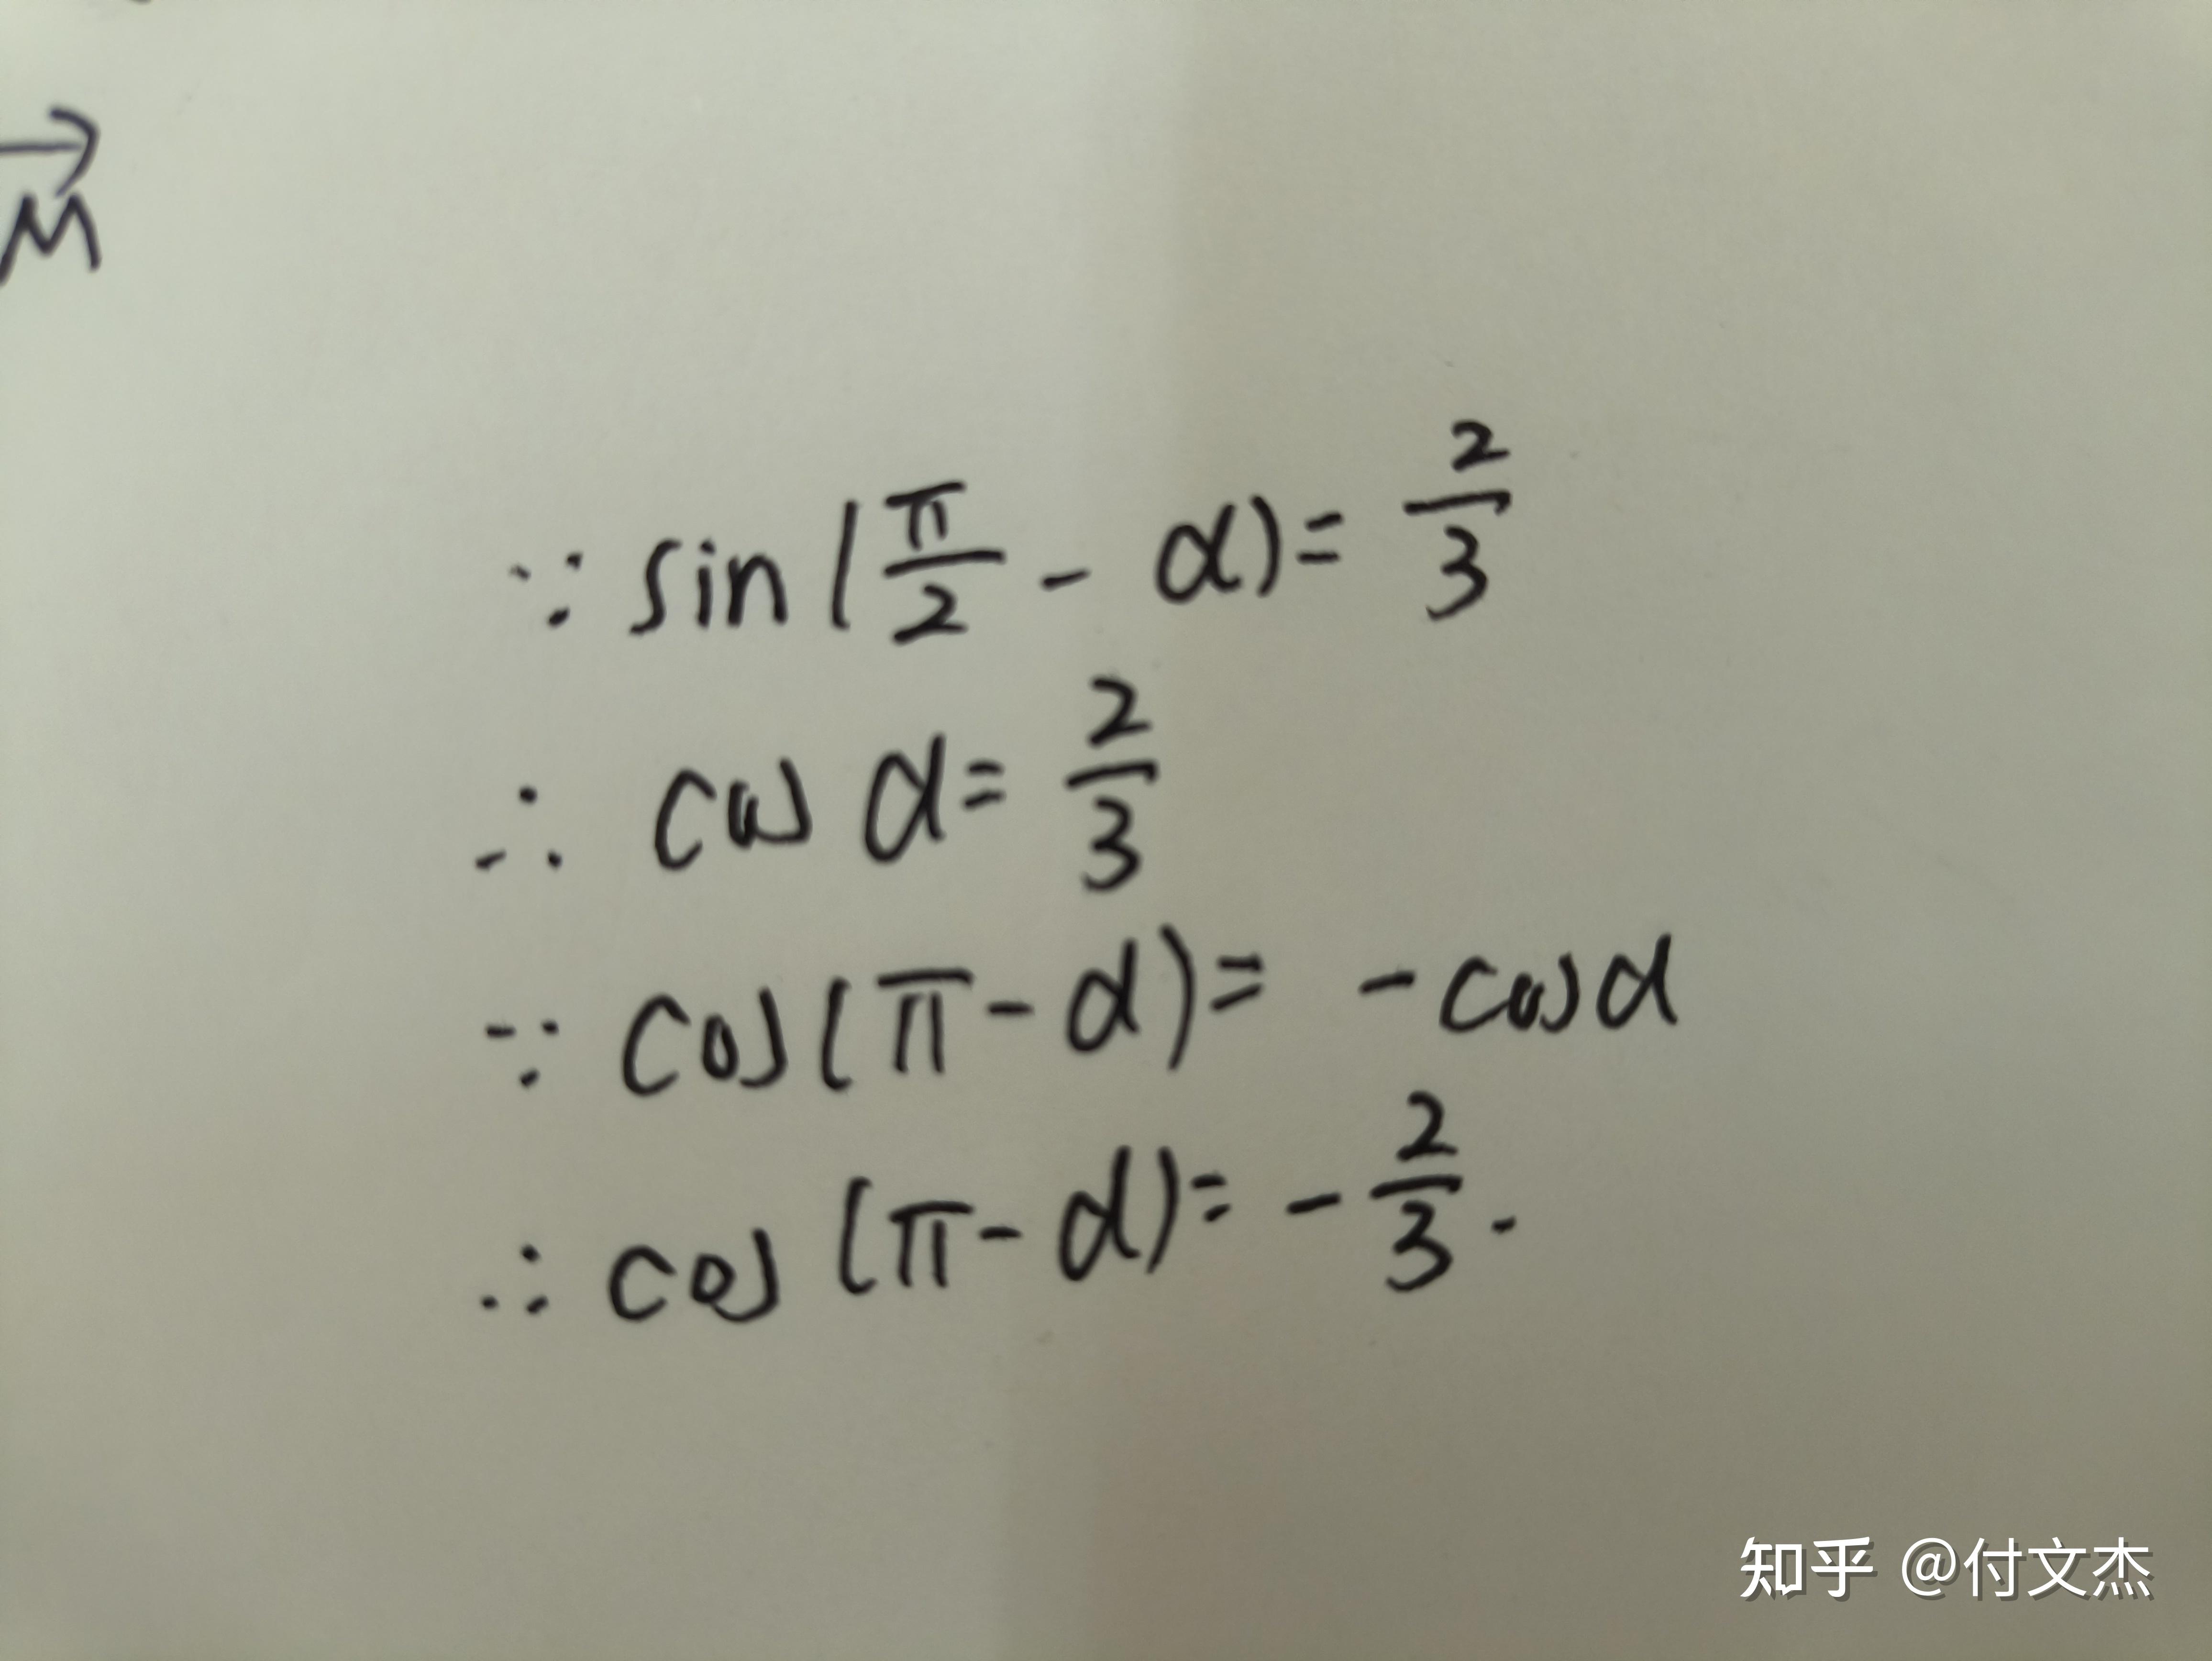 M⃗
∵ sin(π/2 - α) = 2/3
∴ cos α = 2/3
∵ cos(π - α) = - cos α
∴ cos(π - α) = - 2/3.
知乎 @付文杰